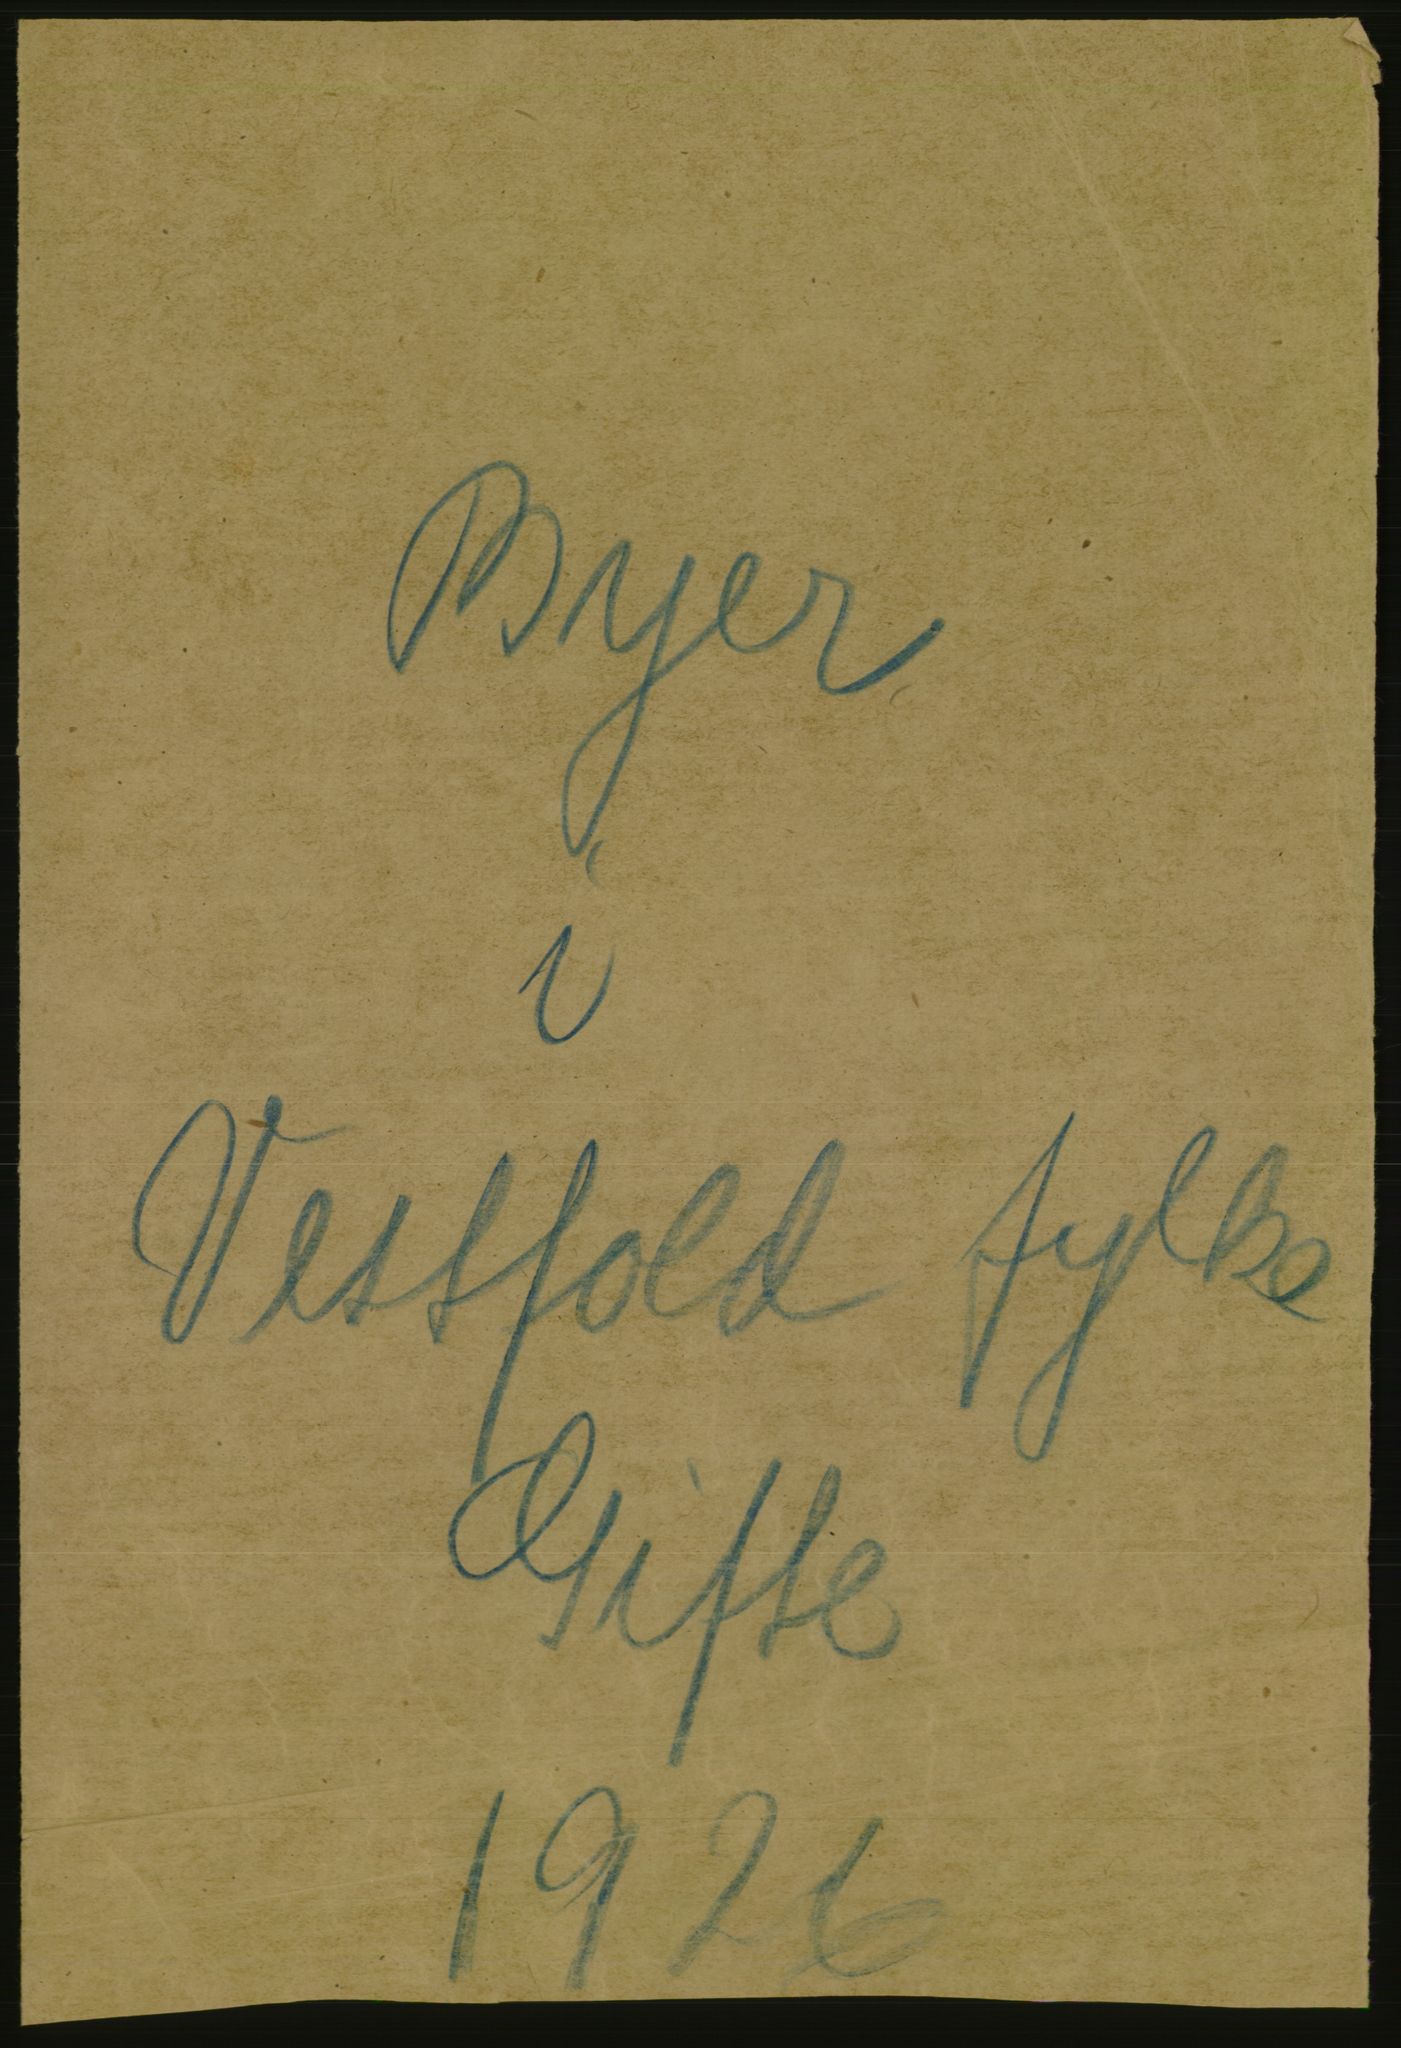 Byer
i
Vestfold fylke
Gifte
1926